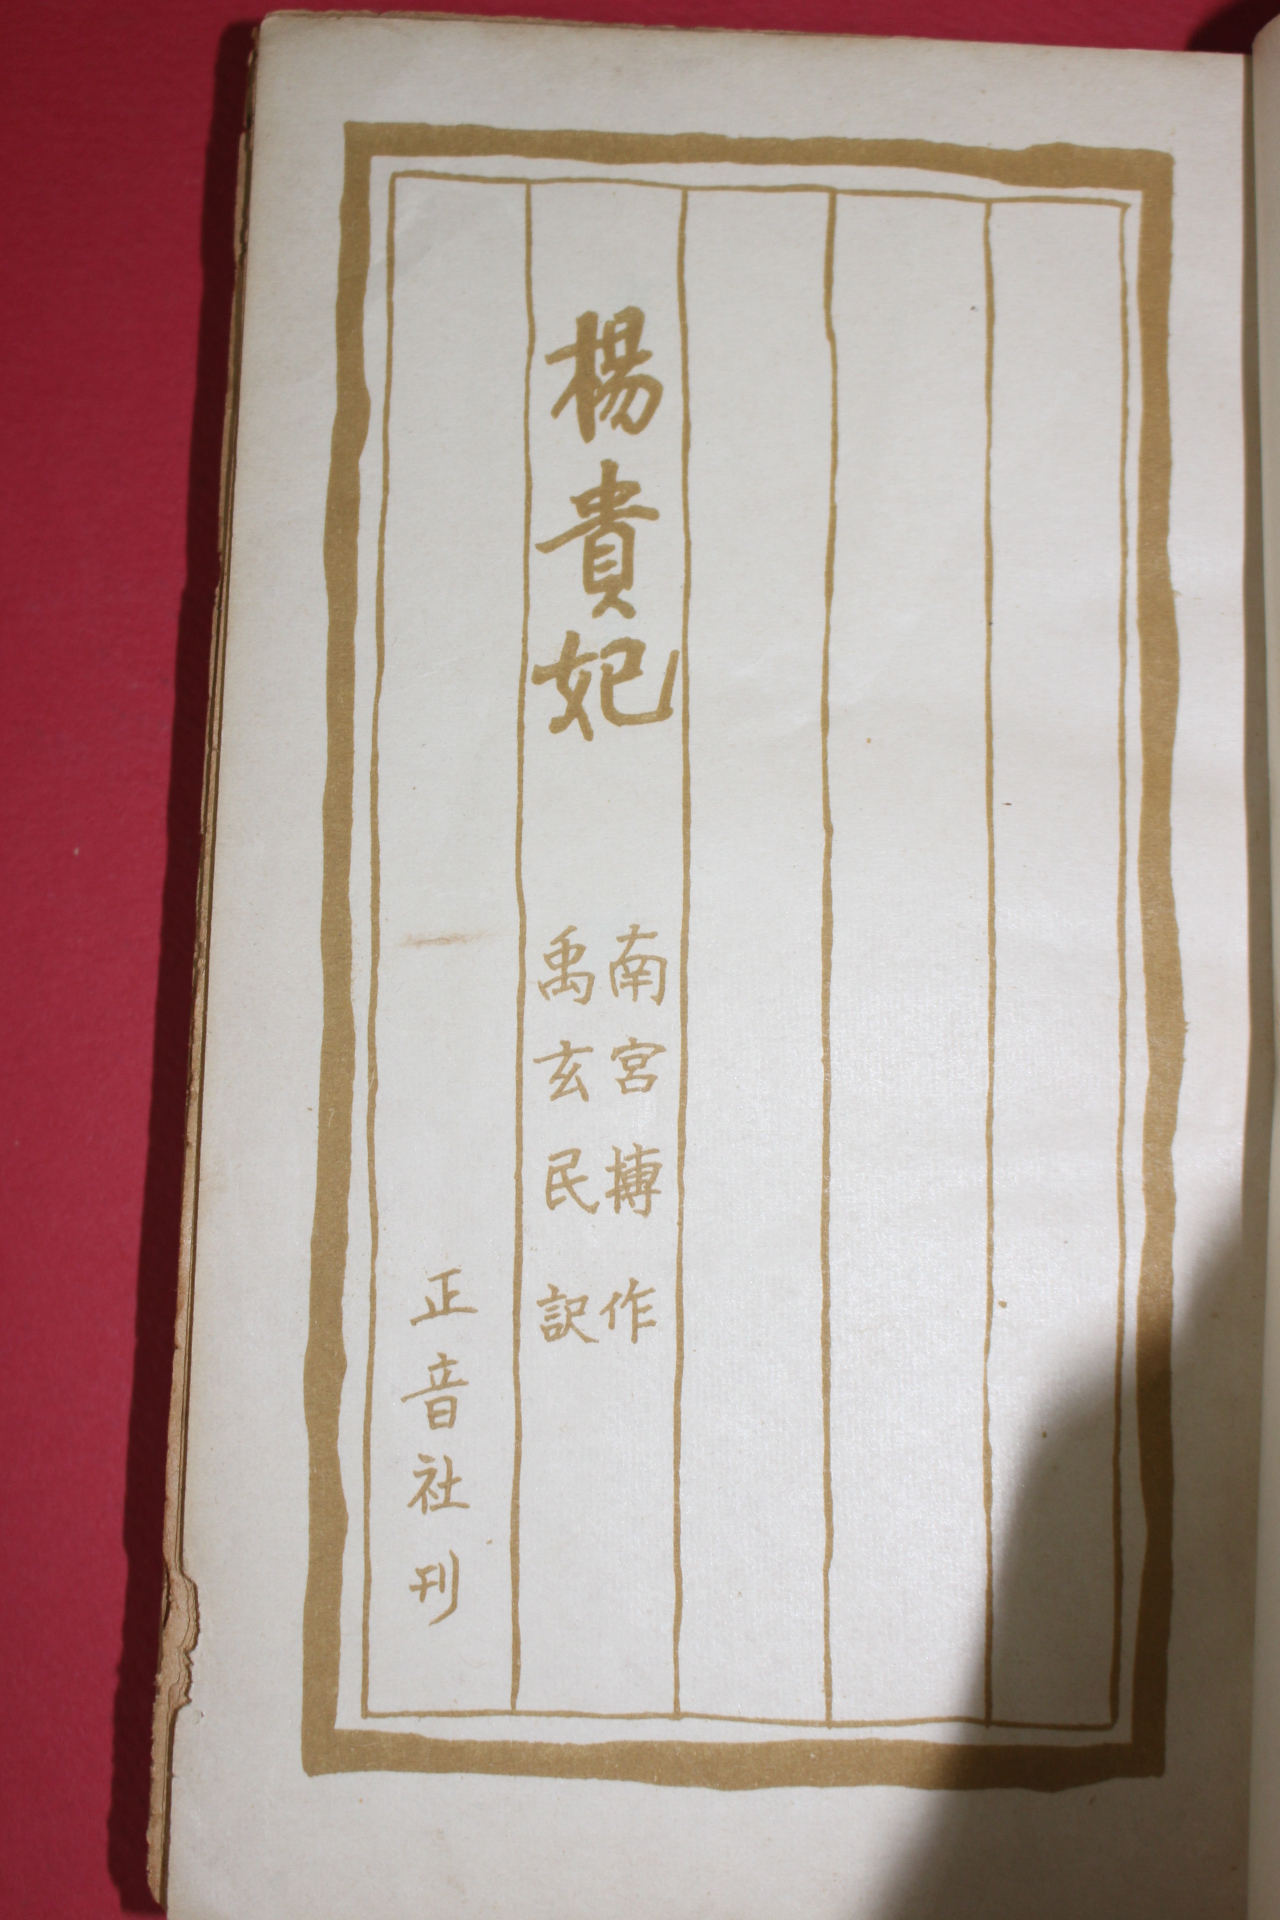 楊貴妃
南宮搏 作
禹玄民 訳
正音社 刊